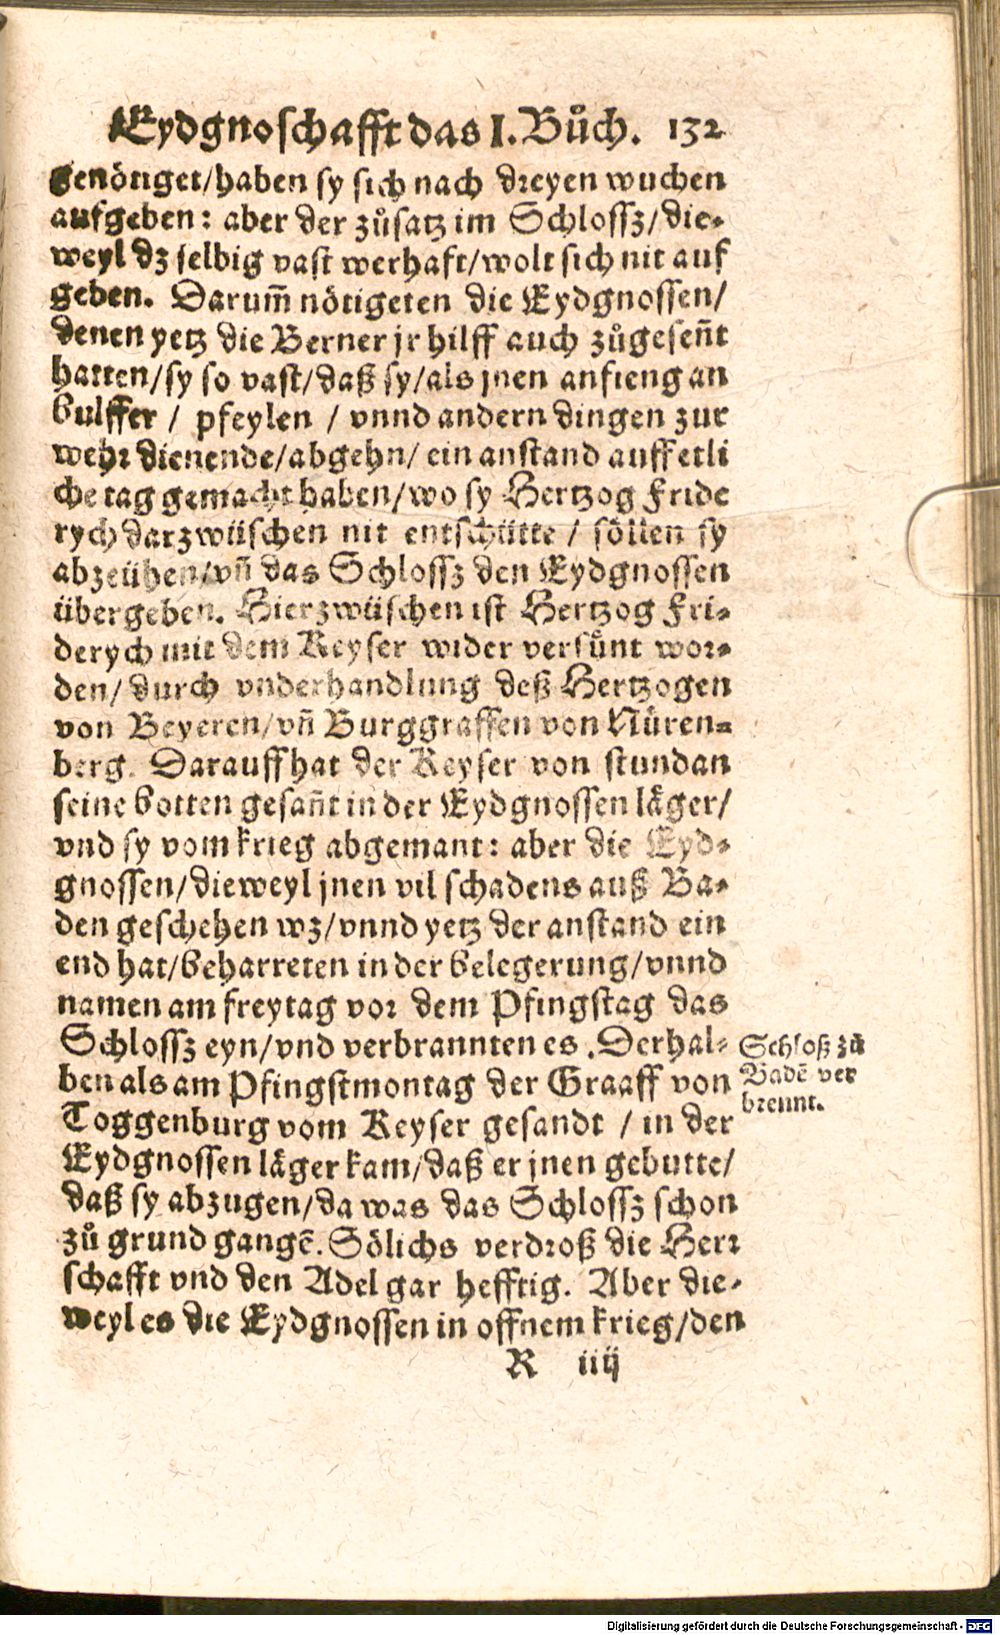 Eydgnoschafft das I. Bůch. 132
genötiget/haben sy sich nach dreyen wuchen
aufgeben: aber der zůsatz im Schlossz/die-
weyl dz selbig vast werhaft/wolt sich nit auf
geben. Darum̄ nötigeten die Eydgnossen/
denen yetz die Berner jr hilff auch zůgesen̄t
hatten/sy so vast/daß sy/als jnen anfieng an
bulffer / pfeylen / vnnd andern dingen zur
wehr dienende/abgehn/ ein anstand auff etli
che tag gemacht haben/wo sy Hertzog Fride
rych darzwüschen nit entschütte / söllen sy
abzeühen/vn̄ das Schlossz den Eydgnossen
übergeben. Hierzwüschen ist Hertzog Fri-
derych mit dem Keyser wider versůnt wor-
den/ durch vnderhandlung deß Hertzogen
von Beyeren/vn̄ Burggraffen von Nüren-
berg. Darauff hat der Keyser von stundan
seine botten gesan̄t in der Eydgnossen läger/
vnd sy vom krieg abgemant: aber die Eyd-
gnossen/dieweyl jnen vil schadens auß Ba-
den geschehen wz/vnnd yetz der anstand ein
end hat/beharreten in der belegerung/vnnd
namen am freytag vor dem Pfingstag das
Schlossz eyn/vnd verbrannten es. Derhal-
ben als am Pfingstmontag der Graaff von
Toggenburg vom Keyser gesandt / in der
Eydgnossen läger kam/daß er jnen gebutte/
daß sy abzugen/da was das Schlossz schon
zů grund gangē. Sölichs verdroß die Herr
schafft vnd den Adel gar hefftig. Aber die-
weyl es die Eydgnossen in offnem krieg/den
R iiij
Schloß zů
Badē ver
brennt.
Digitalisierung gefördert durch die Deutsche Forschungsgemeinschaft - DFG